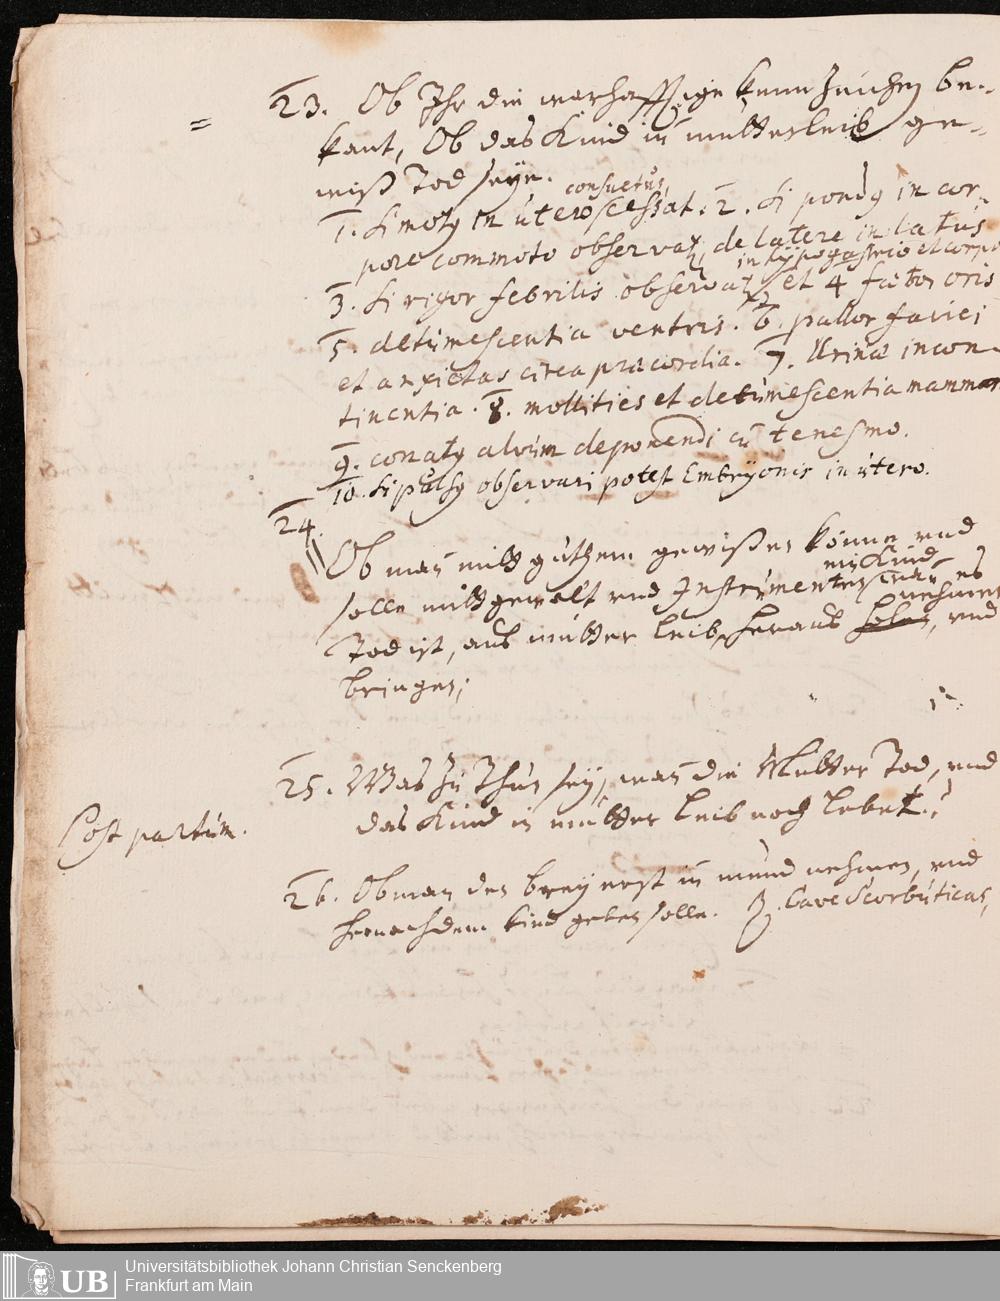 23. Ob Ihr die warhafftige kennzeichen be-
kant, Ob das Kind in mutterleib ge-
wiß Tod seye.
consuetus
1. Si motus in utero cessat. 2. Si pondus in cor-
pore commoto observatur, de latere in latus
in hypogastrio et corpore
3. Si rigor febrilis observatur, et 4 faetor oris
5. detumescentia ventris. 6. pallor faciei
et anxietas circa praecordia. 7. Urinae incon-
tinentia. 8. mollities et detumescentia mammar
9. conatus alvum deponendi cum tenesmo.
10. Si pulsus observari potest Embryonis in utero.
24.
Ob man mitt guthem gewißen könne und
ein Kind
solle mitt gewalt und Instrumenten, wan es
nehmen
Tod ist, aus mutter leib, heraus holen, und
bringen;
25. Was zu thun sey, wan die Mutter Tod, und
das Kind in mutter leib noch lebet?
Post partum.
26. Ob man den brey erst in mund nehmen, und
hernach dem kind geben solle. Cave Scorbuticas,
UB
Universitätsbibliothek Johann Christian Senckenberg
Frankfurt am Main